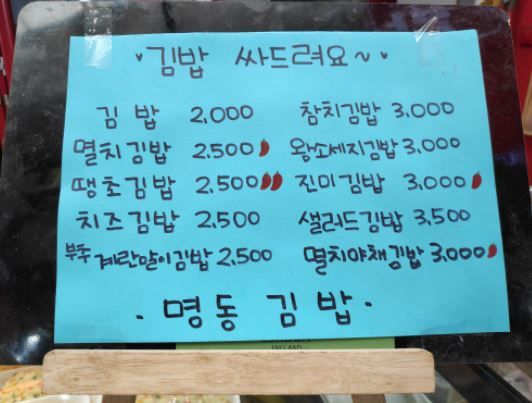 김밥 싸드려요~
김밥 2,000
멸치김밥 2,500
땡초김밥 2,500
치즈김밥 2,500
부추계란말이김밥 2,500
참치김밥 3,000
왕소세지김밥 3,000
진미김밥 3,000
샐러드김밥 3,500
멸치야채김밥 3,000
· 명동 김밥 ·
LONDON
ENGLAND